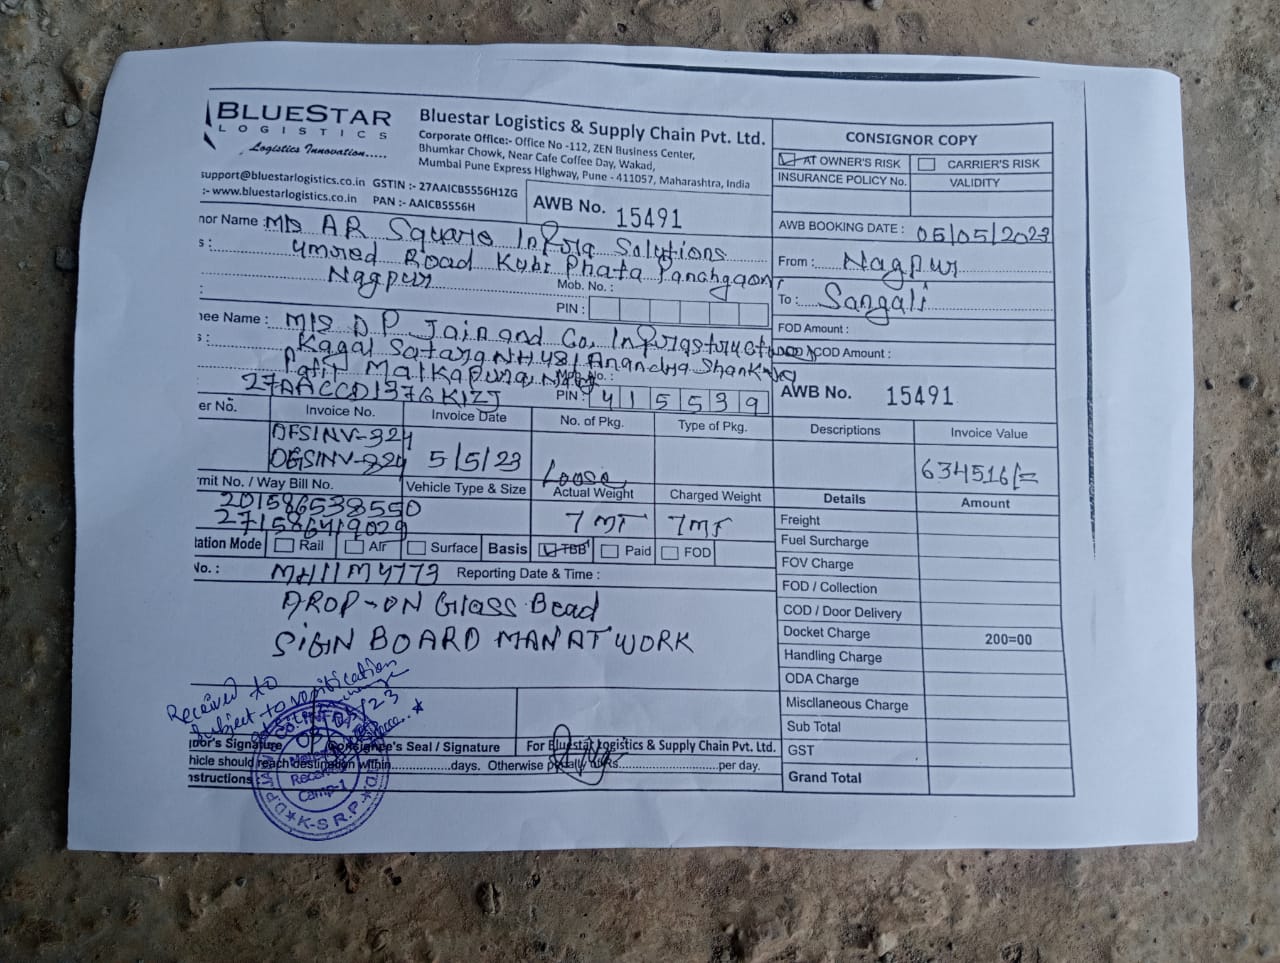 BLUESTAR
LOGISTICS
Logistics Innovation.....
Bluestar Logistics & Supply Chain Pvt. Ltd.
Corporate Office:- Office No -112, ZEN Business Center,
Bhumkar Chowk, Near Cafe Coffee Day, Wakad,
Mumbai Pune Express Highway, Pune - 411057, Maharashtra, India
support@bluestarlogistics.co.in GSTIN :- 27AAICB5556H1ZG
:- www.bluestarlogistics.co.in PAN :- AAICB5556H
AWB No. 15491
CONSIGNOR COPY
AT OWNER'S RISK CARRIER'S RISK
INSURANCE POLICY No. VALIDITY
AWB BOOKING DATE : 05/05/2023
From : Nagpur
To : Sangali
FOD Amount :
COD Amount :
AWB No. 15491
nor Name : M/s AR Square Infra Solutions
s : Umred Road Kuhi Phata Panchgaon
Nagpur Mob. No. :
PIN :
nee Name : M/S D P Jain and Co. Infrastructure
s : Kagal Satara NH 48 / Anandra Shankar
Patil Malkapura, Mob. No. :
27AACCD1376K1ZJ PIN : 415539
er No. Invoice No. Invoice Date No. of Pkg. Type of Pkg. Descriptions Invoice Value
OFSINV-324
OGSINV-324 5/5/23 Loose 634516/=
mit No. / Way Bill No. Vehicle Type & Size Actual Weight Charged Weight Details Amount
201586538550
271586419029 7 MT 7 MT
tation Mode Rail Air Surface Basis TBB Paid FOD
No. : MH11M4773 Reporting Date & Time :
DROP-ON Glass Bead
SIGN BOARD MAN AT WORK
Freight
Fuel Surcharge
FOV Charge
FOD / Collection
COD / Door Delivery
Docket Charge 200=00
Handling Charge
ODA Charge
Miscllaneous Charge
Sub Total
GST
Grand Total
Received to
Subject to
nor's Signature Consignee's Seal / Signature For Bluestar Logistics & Supply Chain Pvt. Ltd.
hicle should reach destination within..............days. Otherwise penalty of Rs........................per day.
nstructions :
Camp-1
K-S R.P.